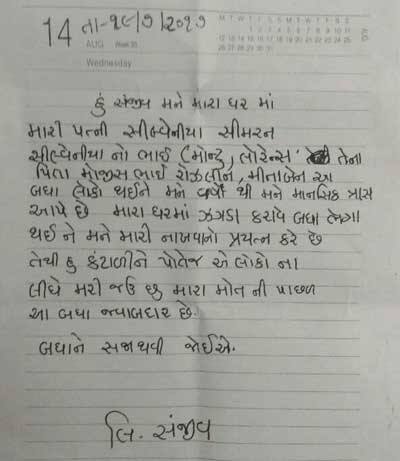 14 તા-૧૯/૭/૨૦૧૭
AUG Week 33
Wednesday
M T W T F S S M T W T F S S
હું સંજીવ મને મારા ઘર માં
મારી પત્ની સીલ્વેનીયા સીમરન
સીલ્વેનીયા નો ભાઈ (મોન્ટુ, લોરેન્સ તેના
પિતા મોજીસ ભાઈ રોઝલીન, મીનાબેન આ
બધા લોકો થઈને મને વર્ષો થી મને માનસિક ત્રાસ
આપે છે મારા ઘરમાં ઝગડા કરાવે બધા ભેગા
થઈ ને મને મારી નાખવાનો પ્રયત્ન કરે છે
તેથી હું કંટાળીને પોતેજ એ લોકો ના
લીધે મરી જઉ છુ મારા મોત ની પાછળ
આ બધા જવાબદાર છે.
બધાને સજા થવી જોઈએ.
લિ. સંજીવ